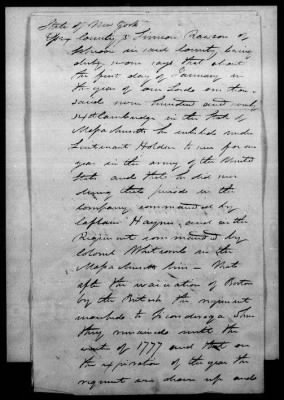 State of New York
Essex County § Simeon Rawson of
Schroon in said County being
duly sworn says that about
the first day of January in
the year of our Lord one thou-
sand seven hundred and
at Cambridge in the State of
Massachusetts he enlisted under
Lieutenant Holden to serve for one
year in the army of the United
States and that he did serve
during that period in the
company commanded by
Captain Haynes, and in the
Regiment commanded by
Colonel Whitcomb in the
Massachusetts line - That
after the evacuation of Boston
by the British the regiment
marched to Ticonderoga &
they remained until the
of 1777 and that on
the expiration of the year the
regiment are drawn up and